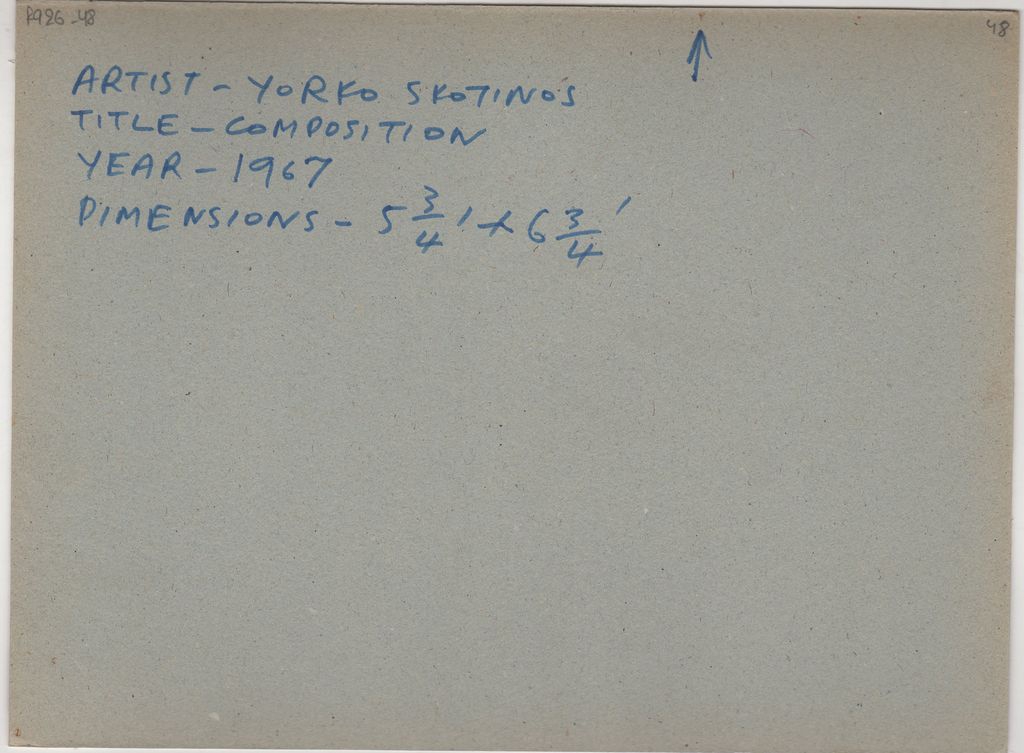 P926-48
48
ARTIST - YORKO SKOTINOS
TITLE - COMPOSITION
YEAR - 1967
DIMENSIONS - 5 3/4 ' x 6 3/4 '